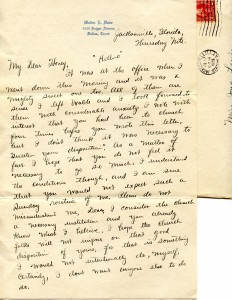 Jacksonville, Florida,
Thursday Nite.
"Hello"
My Dear Honey,
It was at the office when I
went down this morning and it was a
mighty sweet one too. All of them are
since I left Dallas and I look forward to
them with considerable anxiety. I note with
interest that you had been to church
four times before you wrote this letter,
but I don't think it was necessary to
your disposition. As a matter of
fact I hope that you do not feel it
necessary to go so much. I understand
the conditions, though, and I am sure
that you would not expect such a
Sunday routine of me. Please do not
misunderstand me, dear, I consider the church
a necessary institution and you already
know what I believe. I hope the church
folks will not impose on that good
disposition of yours, for that is something
I would not intentionally do, myself.
Certainly, I don't want anyone else to do
so.